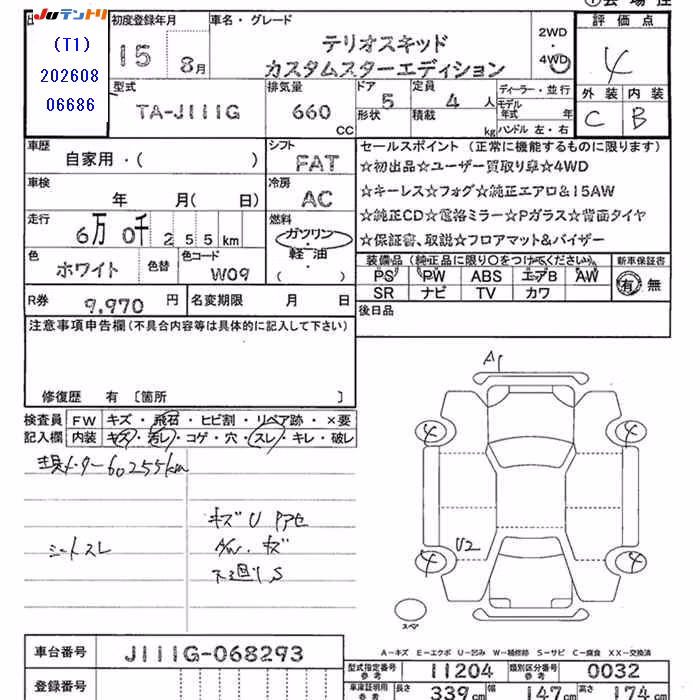 Juテントリ
(T1)
202608
06686
初度登録年月
15 8月
車名・グレード
テリオスキッド
カスタムスターエディション
2WD
4WD
評価点
4
外装 内装
C B
型式
TA-J111G
排気量
660 CC
ドア 形状
5
定員 4 人
積載 kg
ディーラー・並行
モデル年式 年
ハンドル 左・右
車歴
自家用・( )
シフト
FAT
セールスポイント (正常に機能するものに限ります)
☆初出品☆ユーザー買取り車☆4WD
☆キーレス☆フォグ☆純正エアロ&15AW
☆純正CD☆電格ミラー☆Pガラス☆背面タイヤ
☆保証書、取説☆フロアマット&バイザー
車検
年 月( 日)
冷房
AC
走行
6万 0千 255km
燃料
ガソリン・軽油
( )
色
ホワイト
色替
色コード
W09
装備品 (純正品に限り○をつけてください。)
PS PW ABS エアB AW
SR ナビ TV カワ
新車保証書
有 無
R券
9,970 円
名変期限 月 日
後日品
注意事項申告欄(不具合内容等は具体的に記入して下さい)
修復歴 有 〔箇所 〕
検査員記入欄
FW キズ・飛石・ヒビ割・リペア跡・×要
内装 キズ・汚レ・コゲ・穴・スレ・キレ・破レ
現メーター60255km
シートスレ
キズU
A/W・キズ
下廻りS
A1
4
4
U2
4
4
スペア
A-キズ E-エクボ U-凹み W-補修跡 S-サビ C-腐食 XX-交換済
車台番号
J111G-068293
登録番号
型式指定番号 参考
11204
類別区分番号 参考
0032
車庫証明用 参考
長さ 339cm 幅 147cm 高さ 174cm